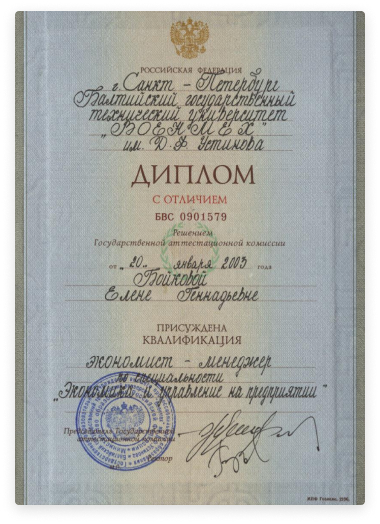 РОССИЙСКАЯ ФЕДЕРАЦИЯ
г. Санкт - Петербург
Балтийский государственный
технический университет
"ВОЕНМЕХ"
им. Д. Ф. Устинова
ДИПЛОМ
С ОТЛИЧИЕМ
БВС 0901579
Решением
Государственной аттестационной комиссии
от "20" января 2003 года
Бойковой
Елене Геннадьевне
ПРИСУЖДЕНА
КВАЛИФИКАЦИЯ
экономист - менеджер
по специальности
"Экономика и управление на предприятии"
Председатель Государственной
аттестационной комиссии
Ректор